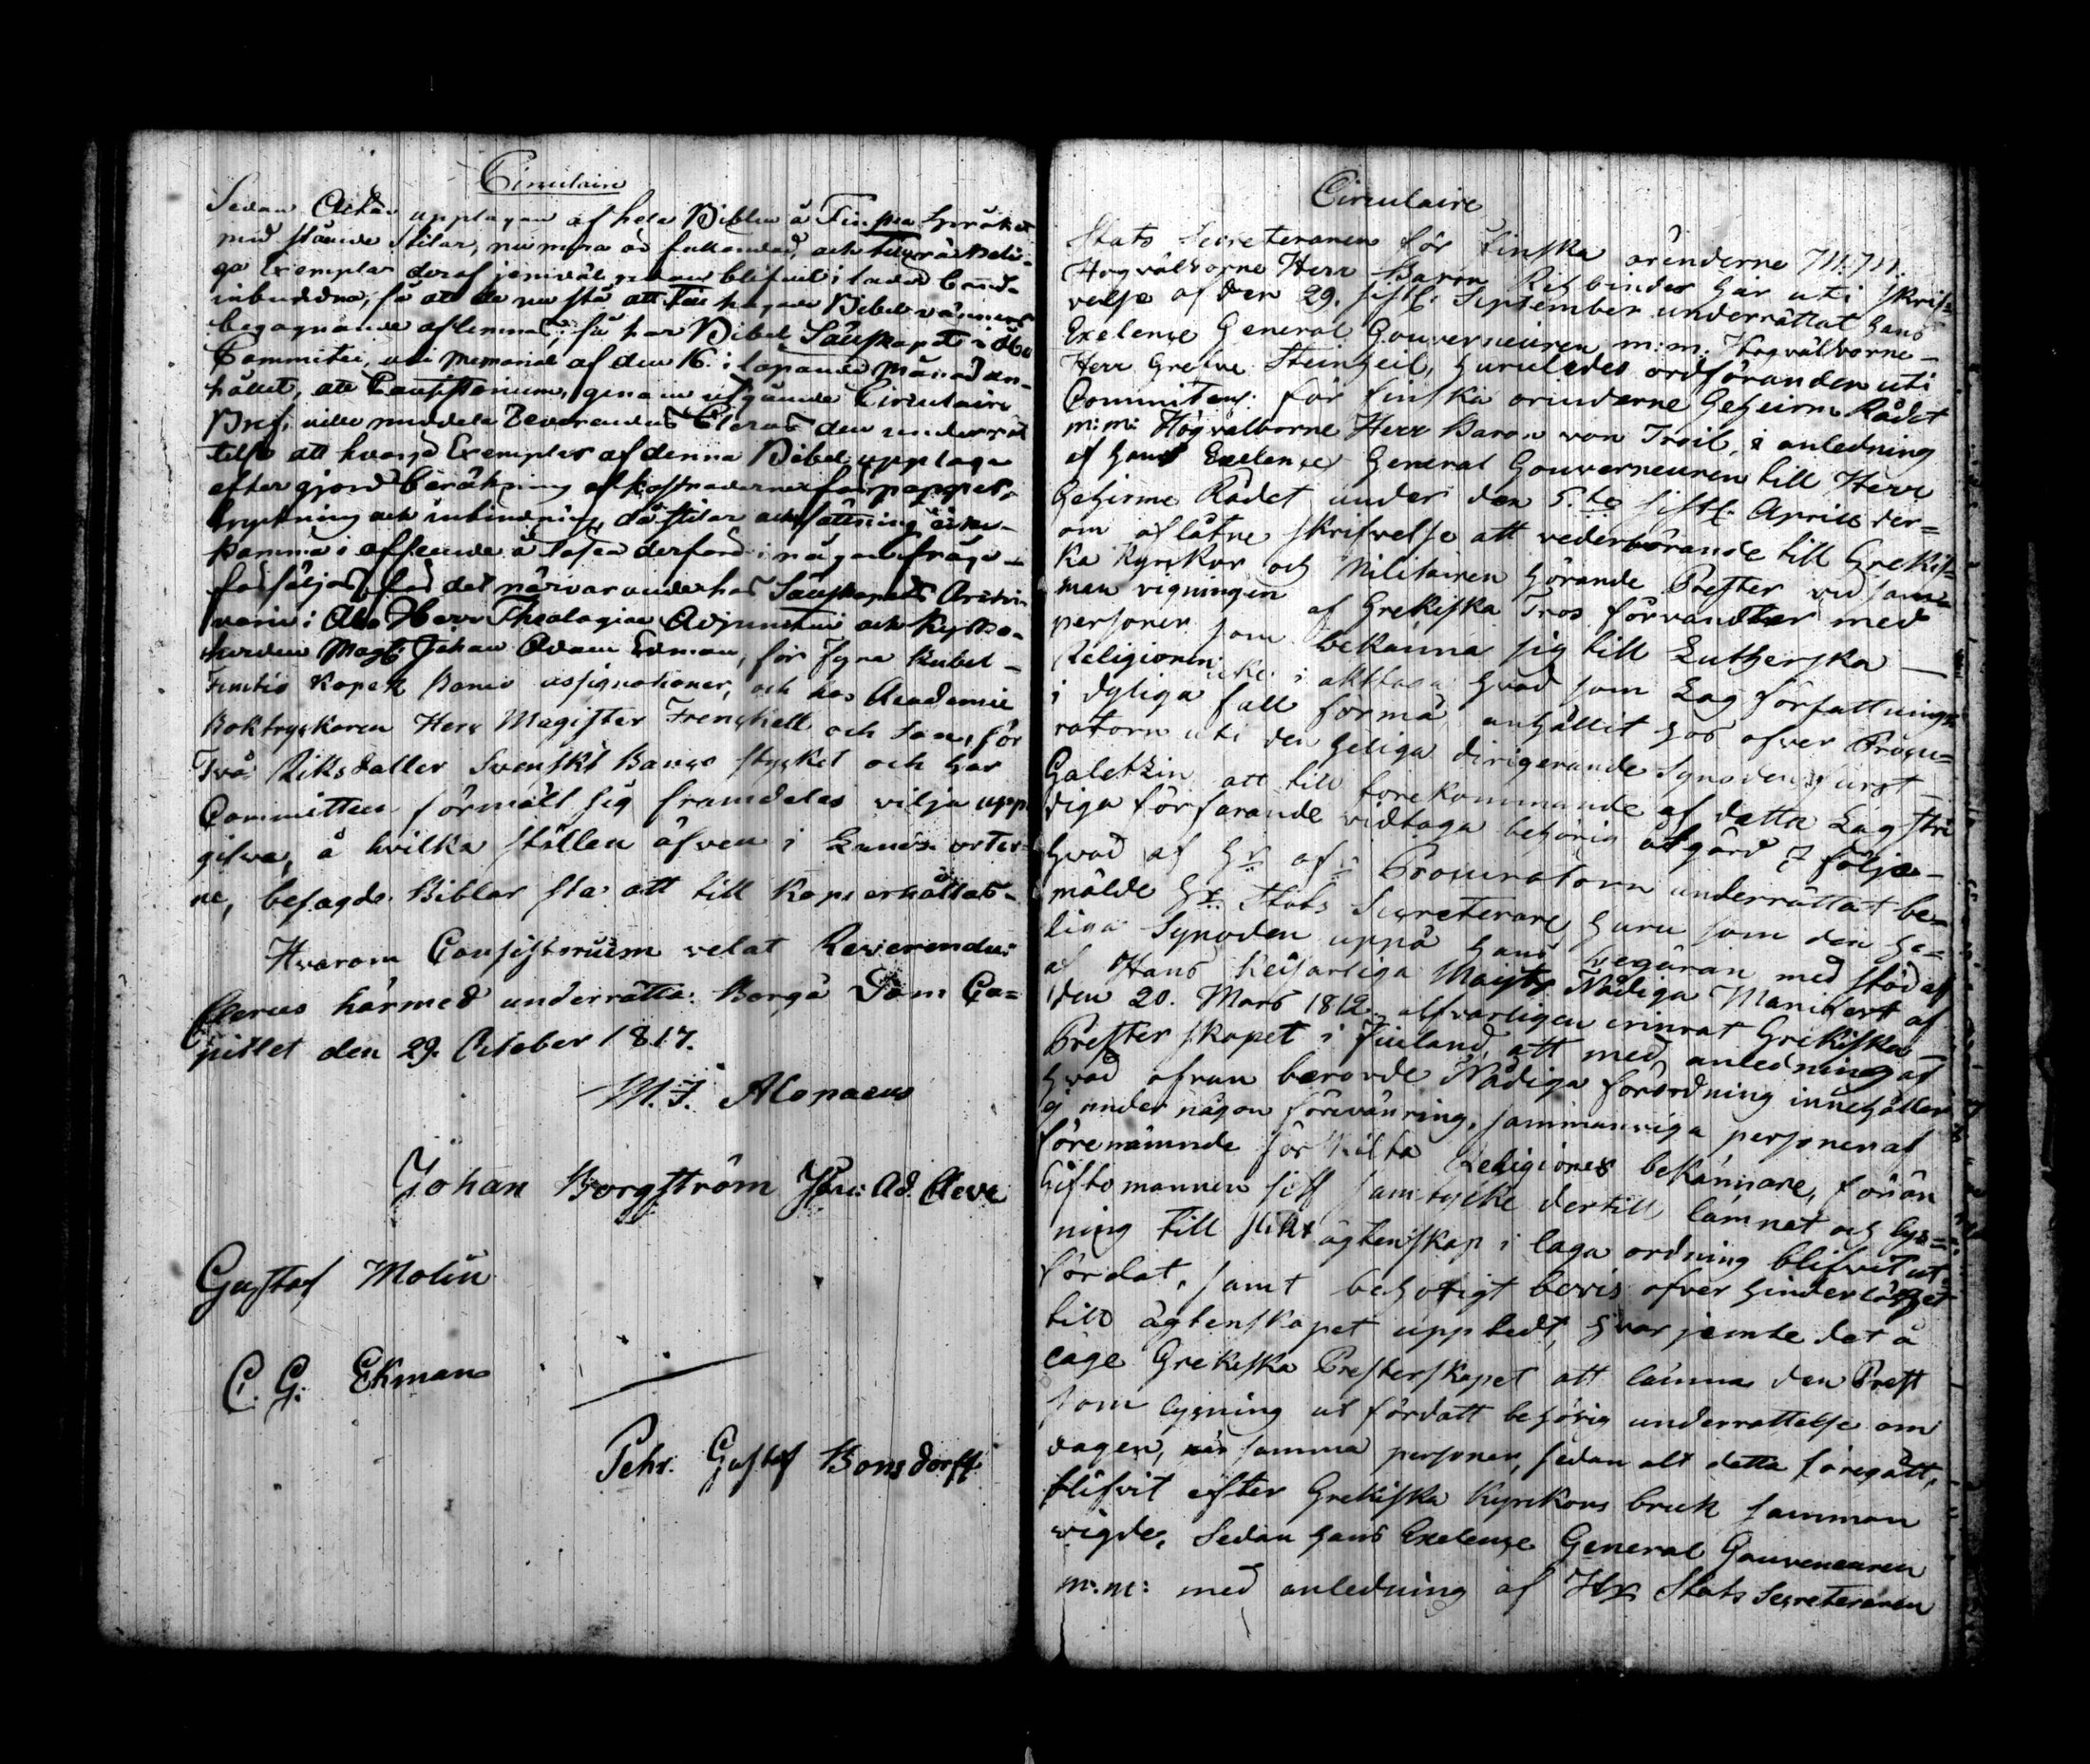 Circulaire
Sedan Octav upplagan af hela Bibeln å Finska Språket
med stående Stilar, nu mera är fullendad, och
ga Exemplar deraf jemväl redan blifvit i
inbundna, så att de nu stå att Bibel vänners
begagnande aflemnas; så har Bibel Sällskapets i Åbo
Committée, uti Memorial af den 16. i löpande Månad an-
hållit, att Consistorium, genom utgående Circulaire
Bref, ville meddela Reverendus Clerus den underrät
telse att hvarje Exemplar af denna Bibel upplaga
efter gjord beräkning af kostnaderne för papper,
tryckning och inbindning, då stilar och sättning icke
komma i afseende å Satsen derför i någon fråga
försäljes, för det närvarande hos Sällskapets
i Åbo Herr Theologiae Adjuncten och Kyrko-
herden Mag. Johan Adam Edman, för Fyra Rubel
Femtio Kopek Banco assignationer, och hos Academie
Boktryckaren Herr Magister Frenckell och Son, för
Två Riksdaller Svenskt Banco stycket och har
Committeen förmält sig framdeles vilja upp
gifva, å hvilka ställen äfven i Lands orter-
ne, besagde Biblar stå att till köps erhållas.
Hvarom Consistorium velat Reverendus
Clerus härmed underrätta. Borgå Dom Ca=
pitlet den 29. October 1817.
M. J. Alopaeus
Johan Borgström Ad. Cleve
Gustaf Molin
C. G. Ekman
Pehr Gustaf Bonsdorff
Circulaire
Stats Secreteraren för Finska ärenderne M.M.
Högvälborne Herr Baron Rehbinder har uti skrif=
velse af den 29. sistl. September underrättat hans
Exelence General Gouverneuren m:m: Högvälborne
Herr Grefve Steinheil, huruledes ordföranden uti
Committens för finska ärenderne Geheime Rådet
m:m: Högvälborne Herr Baron von Troil, i anledning
af hans Exelence General Gouverneuren till Herr
Geheime Rådet under den 5.te sistl. Aprill der=
om aflåtne skrifvelse att vederbörande till Grekis=
ka Kyrkor och Militairen hörande Prester vid sam=
man vigningen af Grekiska Tros förvandter med
personer som bekänna sig till Lutherska
Religionen i akttaga hvad som Lag författningar
i dyliga fall förmå anhållit hos öfver Procu=
ratorn uti den heliga dirigerande Synoden Furst
Galetzin att till förekommande af detta Lag stri
diga förfarande vidtaga behörig åtgärd I följe
hvad af Hr öfv Procuratorn underrättat be=
mälde Hr Stats Secreterare huru som den he=
liga Synoden uppå hans begäran med stöd af
af Hans Keiserliga Maijts Nådiga Manifest af
den 20. Mars 1812 alfvarligen erinrat Grekiska
Presterskapet i Finland att med anledning af
hvad ofvan berörde Nådiga förordning innehåller
ej under någon förevänning, sammanviga personer af
förenämnde särskilta Religioner bekännare, förän
Giftomannen sitt samtycke dertill lämnat och lys=
ning till slikt ägtenskap i laga ordning blifvit ut
färdat, samt behörigt bevis öfver hinderlöshet
till ägtenskapet upptedt, hvar jemte det å
läge Grekiska Presterskapet att lämna den Prest
som lysning ut färdatt behörig underrättelse om
dagen, när samma personer, sedan alt detta föregått,
blifvit efter Grekiska Kyrkans bruk samman
vigde. Sedan hans Exelence General Gouverneuren
m:m: med anledning af Hr Stats Secreteraren